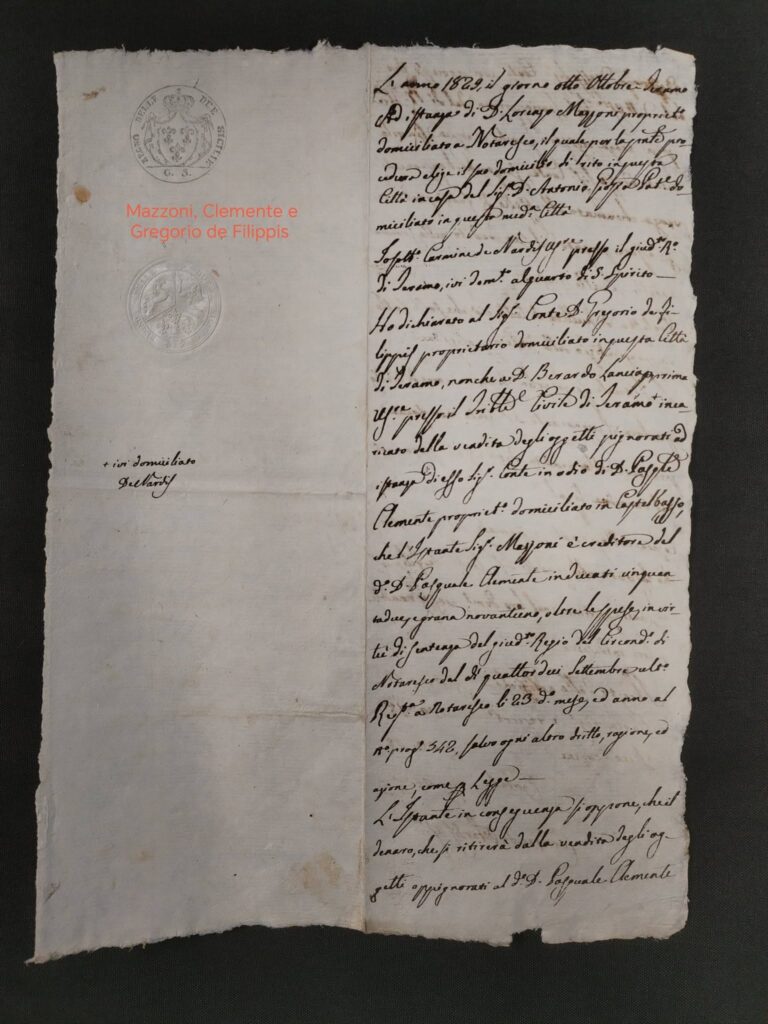 REGNO DELLE DUE SICILIE
G. 3.
Mazzoni, Clemente e
Gregorio de Filippis
+ ivi domiciliato
De Nardis
L'anno 1829, il giorno otto Ottobre = Teramo
Ad istanza di D. Lorenzo Mazzoni propriet.°
domiciliato a Notaresco, il quale per la pnte pro
cedura elige il suo domicilio di rito in questa
Città in casa del Sig.r D. Antonio do-
miciliato in questa med.a Città
Carmine de Nardis Us.re presso il giud.e R.°
di Teramo, ivi dom.to al quarto di S. Spirito —
Ho dichiarato al Sig.r Conte D. Gregorio de Fi-
lippis proprietario domiciliato in questa Città
di Teramo, nonche a D. Berardo Lanciaprima
Us.re presso il Trib.le Civile di Teramo + inca-
ricato della vendita degli oggetti pignorati ad
istanza di esso Sig.r Conte in odio di D. Pasq.le
Clemente propriet.° domiciliato in Castelbasso,
che l'Istante Sig.r Mazzoni è creditore del
d.° D. Pasquale Clemente in ducati cinquan-
tadue, e grana novantuno, oltre le spese, in vir-
tù di sentenza del giud.e Regio del Circond.° di
Notaresco del dì quattordici Settembre ult.°
Reg.ta a Notaresco li 23 d.° mese, ed anno al
n.° prog. 342, salvo ogni altro dritto, ragione, ed
azione, come per Legge —
L'Istante in conseguenza si oppone, che il
denaro, che si ritirerà dalla vendita degli og-
getti oppignorati al d.° D. Pasquale Clemente